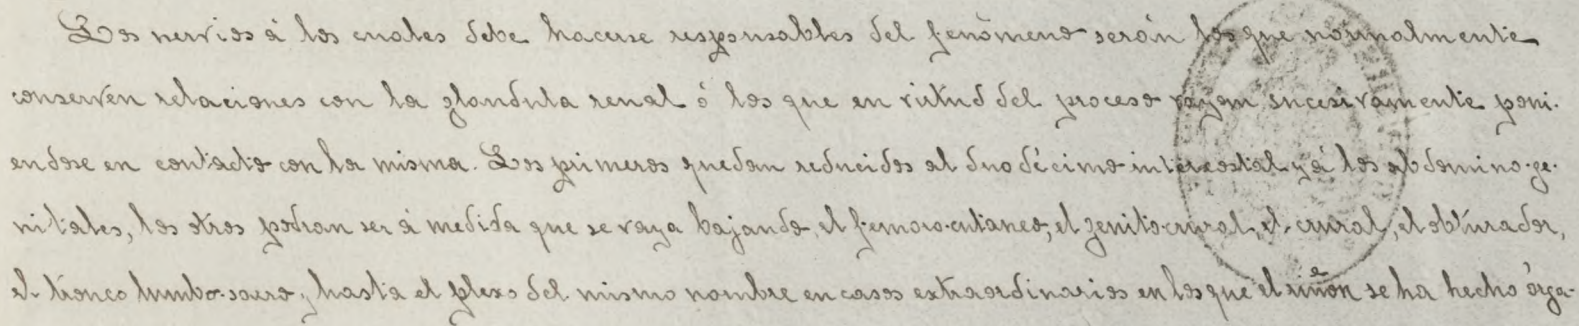 Los nervios á los cuales debe hacerse responsables del fenómeno serán los que normalmente
conserven relaciones con la glandula renal ó los que en virtud del proceso vayan sucesivamente poni-
endose en contacto con la misma. Los primeros quedan reducidos al duodécimo intercostal y á los abdomino-ge-
nitales, los otros podran ser á medida que se vaya bajando, el femoro-cutaneo, el genito-crural, el crural, el obturador,
el tronco lumbo-sacro, hasta el plexo del mismo nombre en casos extraordinarios en los que el riñon se ha hecho órga-